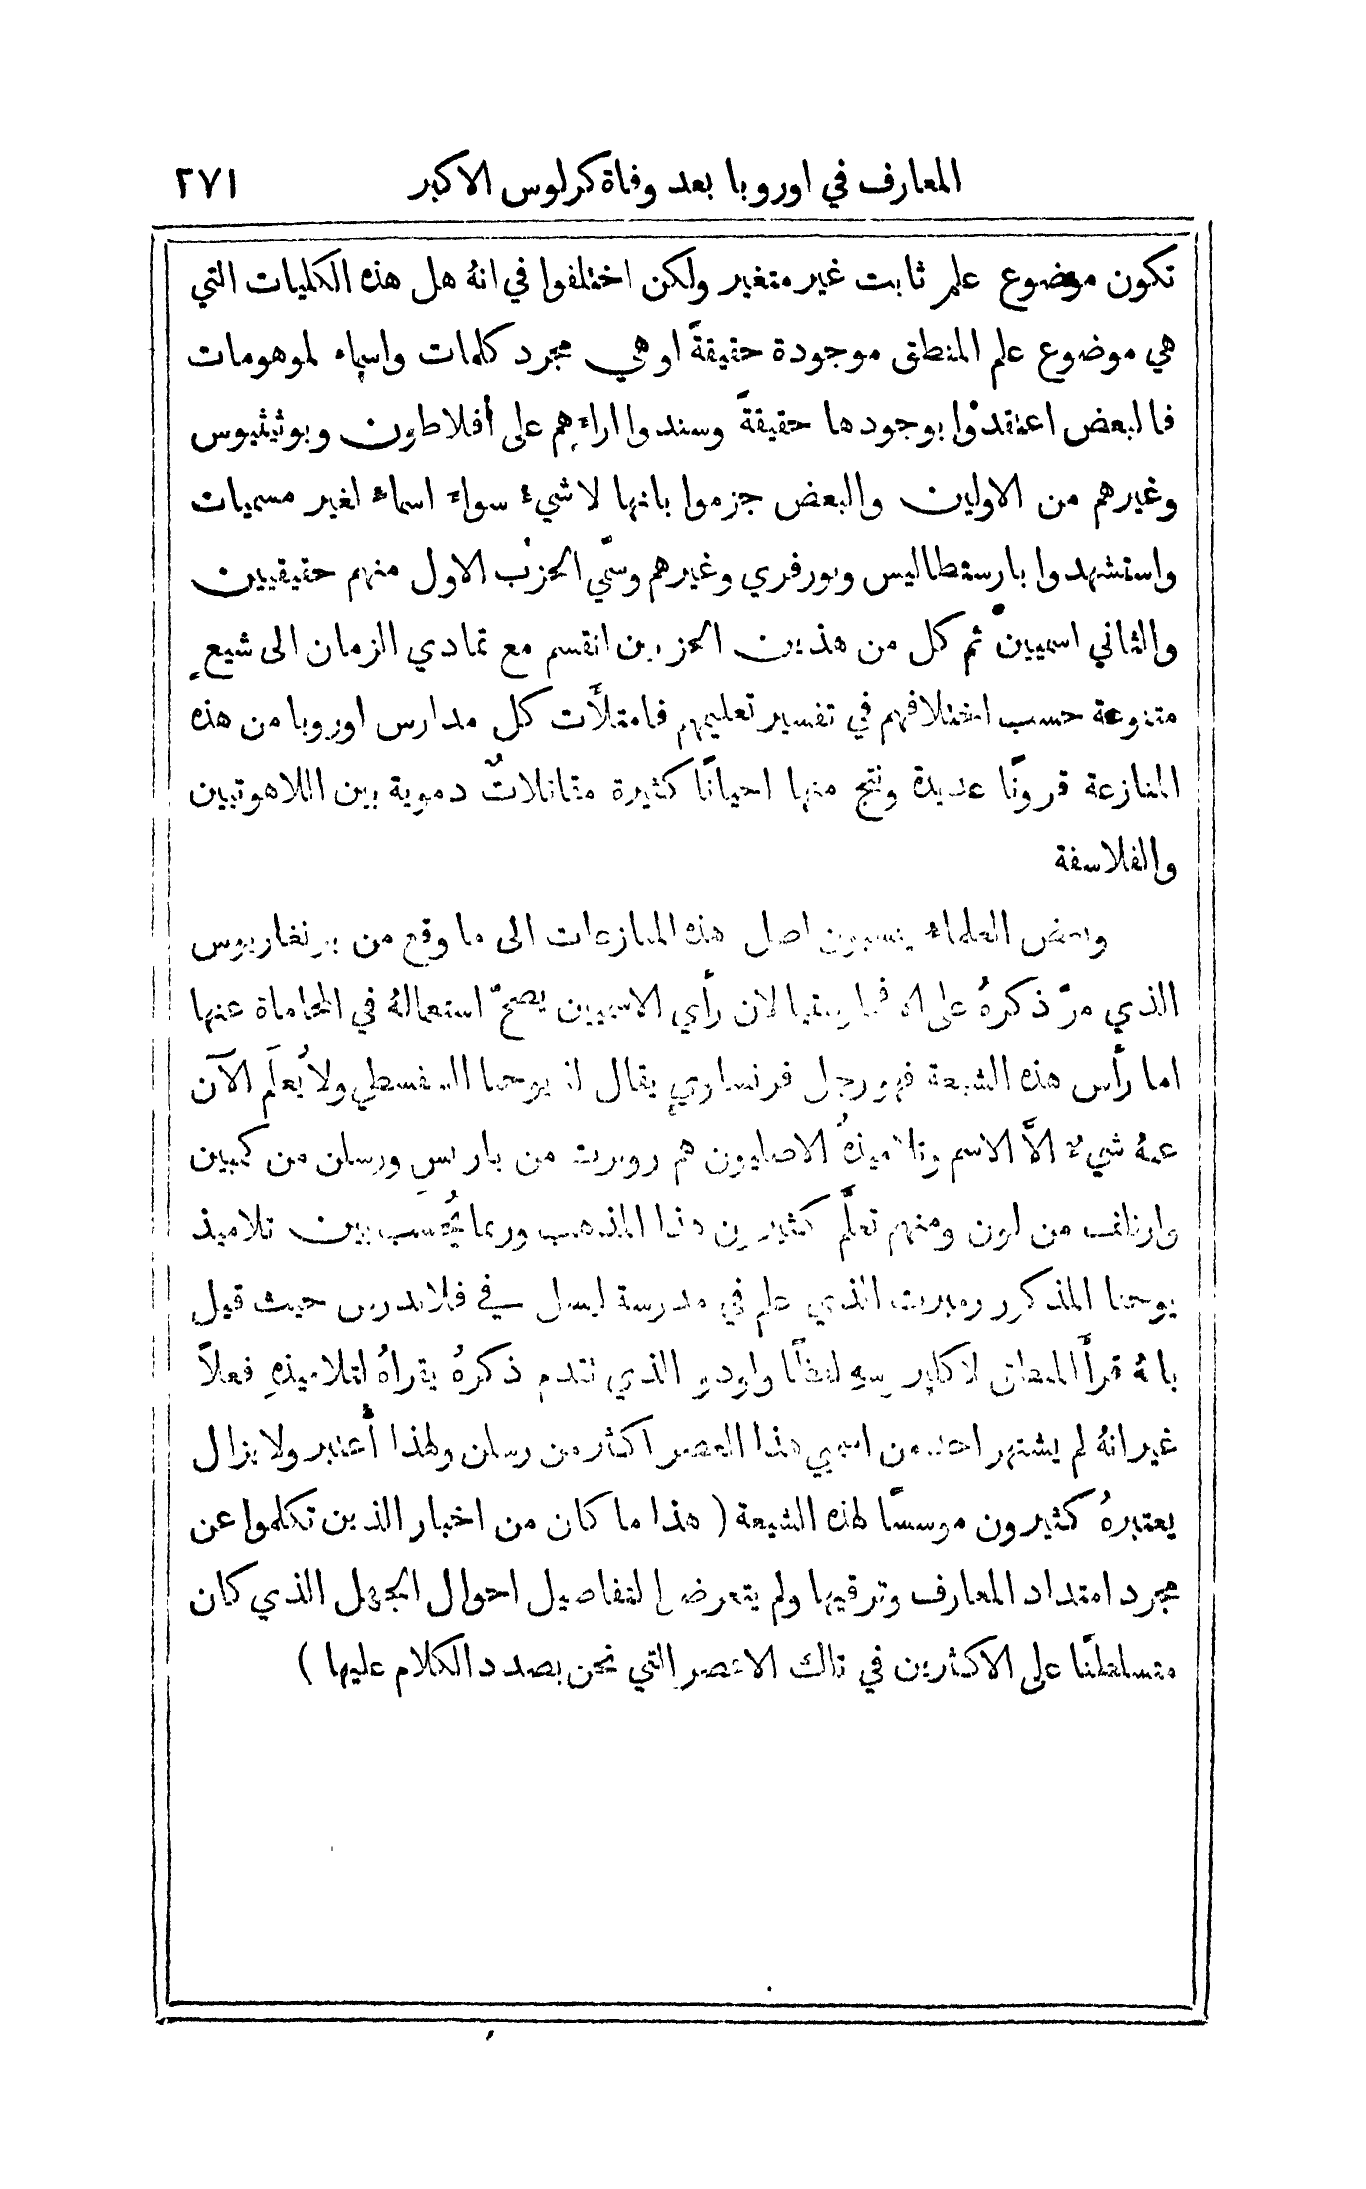 المعارف في اوروبا بعد وفاة كرلوس الاكبر ٢٧١
تكون موضوع علم ثابت غير متغير ولكن اختلفوا في انهُ هل هذه الكليات التي
هي موضوع علم المنطق موجودة حقيقةً او هي مجرد كلمات واسماء لموهومات
فالبعض اعتقدوا بوجودها حقيقةً وسندوا اراءَهم على أفلاطون وبوثيثيوس
وغيرهم من الاولين والبعض جزموا بانها لا شيء سواءَ اسماءً لغير مسميات
واستشهدوا بارسطاليس وبورفري وغيرهم وسمّي الحزب الاول منهم حقيقيين
والثاني اسميين ثم كل من هذين الحزبين انقسم مع تمادي الزمان الى شيعٍ
متنوعة حسب اختلافهم في تفسير تعليمهم فامتلأَت كل مدارس اوروبا من هذه
المنازعة قرونًا عديدة ونتج منها احيانًا كثيرة مقاتلاتٌ دموية بين اللاهوتيين
والفلاسفة
وبعض العلماء ينسبون اصل هذه المنازعات الى ما وقع من برنغاريوس
الذي مرّ ذكرهُ على لان رأي الاسميين يصحّ استعمالهُ في المحاماة عنها
اما رأس هذه الشيعة فهو رجل فرنساوي يقال لهُ يوحنا السفسطي ولا يُعلَم الآن
عنهُ شيءٌ الاَّ الاسم وتلاميذهُ الاصليون هم روبرت من باريس ورسلن من كمبين
وارنلف من لون ومنهم تعلَّم كثيرين هذا المذهب وربما يُحسب بين تلاميذ
يوحنا المذكور رمبرت الذي علم في مدرسة ليسل في فلاندرس حيث قيل
بانهُ قرأَ المنطق لاكليروسهِ لفظًا واودو الذي تقدم ذكرهُ يقراهُ لتلاميذهِ فعلاً
غير انهُ لم يشتهر احد من اسميي هذا العصر اكثر من رسلن ولهذا أُعتبر ولا يزال
يعتبرهُ كثيرون موسسًا لهذه الشيعة (هذا ما كان من اخبار الذين تكلموا عن
مجرد امتداد المعارف وترقيها ولم يتعرضوا لتفاصيل احوال الجهل الذي كان
متسلطنًا على الاكثرين في تلك الاعصر التي نحن بصدد الكلام عليها)